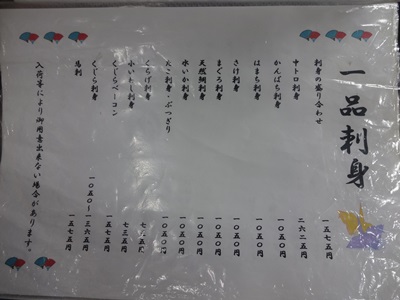 一品刺身
刺身の盛り合わせ 一五七五円
中トロ刺身 二六二五円
かんぱち刺身 一〇五〇円
はまち刺身 一〇五〇円
さけ刺身 一〇五〇円
まぐろ刺身 一〇五〇円
天然鯛刺身 一〇五〇円
水いか刺身 一〇五〇円
たこ刺身・ぶつぎり 一〇五〇円
くらげ刺身
小いわし刺身 七三五円
くじらベーコン 一五七五円
くじら刺身 一〇五〇〜一三六五円
馬刺 一五七五円
入荷等により御用意出来ない場合があります。